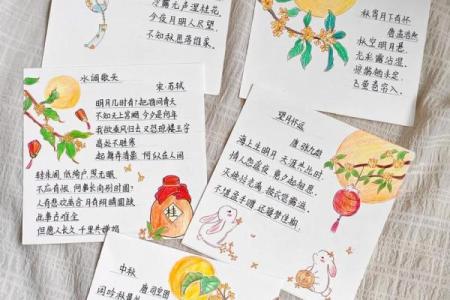 冷露无声湿桂花
今夜月明人尽望
不知秋思落谁家
秋宵月下有怀
唐 孟浩然
秋空明月悬
光彩露沾湿
惊鹊栖未定
飞萤卷帘入
水调歌头
宋·苏轼
明月几时有?把酒问青天
不知天上宫阙 今夕是何年
我欲乘风归去 又恐琼楼玉宇
高处不胜寒
起舞弄清影 何似在人间
转朱阁 低绮户 照无眠
不应有恨 何事长向别时圆?
人有悲欢离合 月有阴晴圆缺
此事古难全
但愿人长久 千里共婵娟
桂
望月怀远
唐 张九龄
海上生明月 天涯共此时
情人怨遥夜 竟夕起相思
灭烛怜光满 披衣觉露滋
不堪盈手赠 还寝梦佳期
中秋
唐 司空图
闲吟秋景